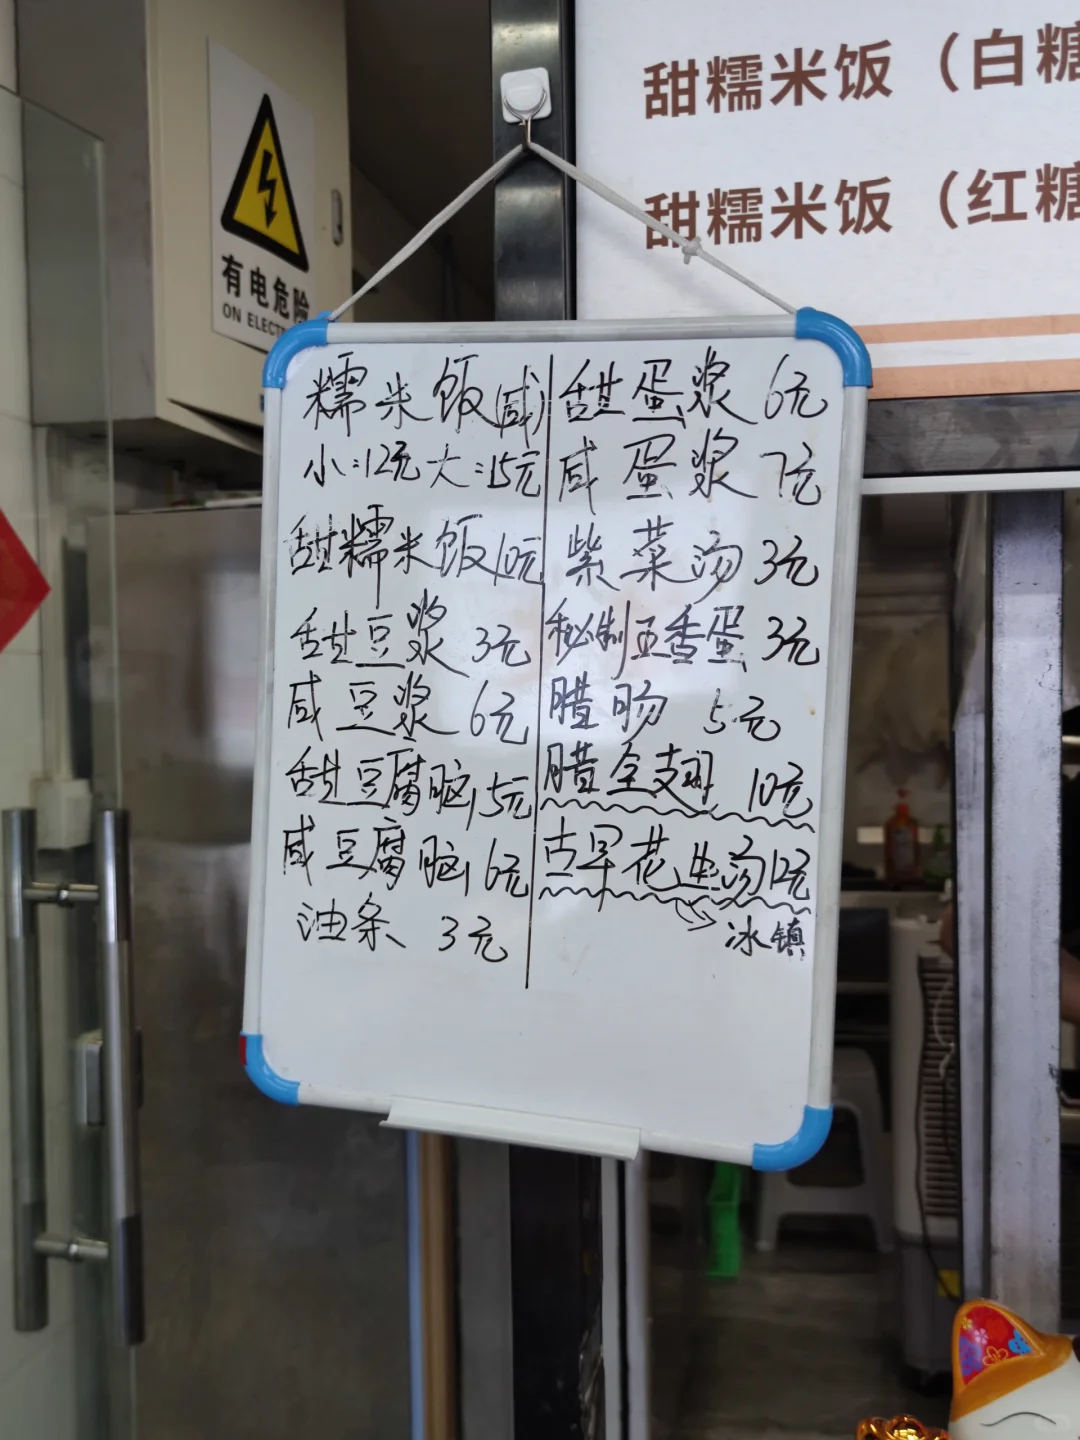 甜糯米饭（白糖
甜糯米饭（红糖
有电危险
ON ELECT
糯米饭(咸)
小:12元 大:15元
甜糯米饭10元
甜豆浆 3元
咸豆浆 6元
甜豆腐脑 5元
咸豆腐脑 6元
油条 3元
甜蛋浆 6元
咸蛋浆 7元
紫菜汤 3元
秘制五香蛋 3元
腊肠 5元
腊全翅 10元
古早花生汤12元
冰镇